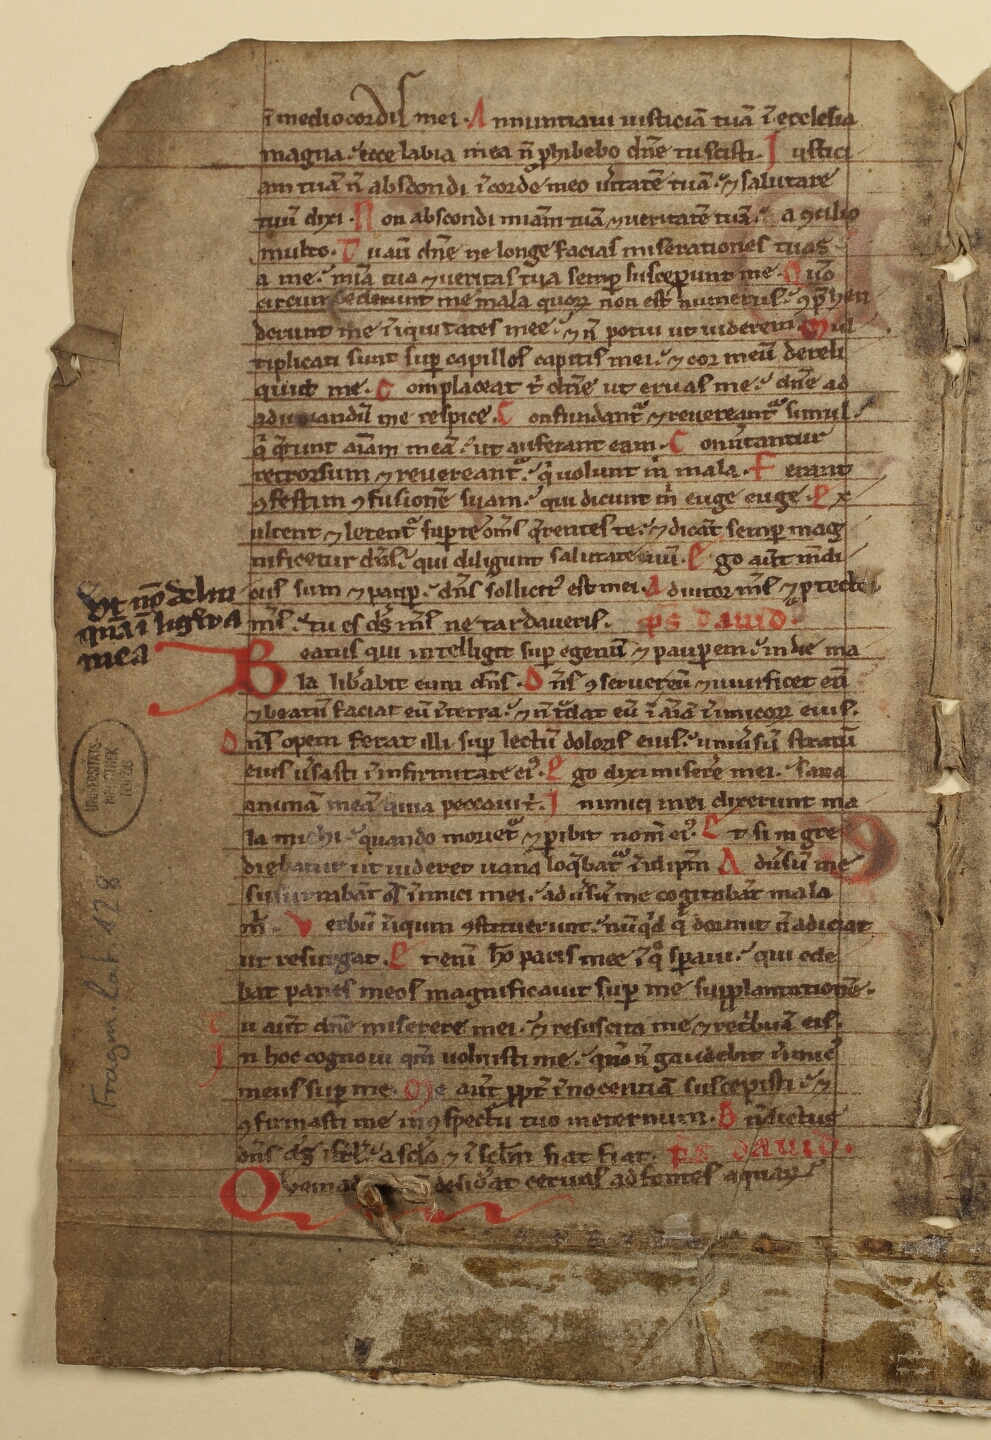 ī medio cordis mei · Annuntiaui iusticiā tuā ī ecclesia
magna · ecce labia mea ñ ꝓhibebo dñe tu scisti · Iustici
am tuā ñ abscondi ī corde meo ueritatē tuā · ⁊ salutare
tuū dixi · Non abscondi miam tuā ⁊ ueritatē tuā · a ꝯcilio
multo · Tu aū dñe ne longe facias miserationes tuas
a me · mia tua ⁊ ueritas tua semꝑ susceperunt me · Qm̄
circumdederunt me mala quoꝝ non est numerus · ꝯp̄hen
derunt me īiquitates mee · ⁊ ñ potui ut uiderem Mul
tiplicati sunt suꝑ capillos capitis mei · ⁊ cor meū dereli
quit me · Complaceat t̄ dñe ut eruas me · dñe ad
adiuuandū me respice · Confundant᷑ ⁊ reuereant᷑ simul
q̄ querunt aīam meā · ut auferant eam · Conūtantur
retrorsum ⁊ reuereant᷑ · q̄ uolunt m̄ mala · Ferant
ꝯfestim ꝯfusionē suam · qui dicunt m̄ euge euge · Ex
ultent ⁊ letent᷑ suꝑ te oms̄ q̄rentes te · ⁊ dicāt semꝑ mag
nificetur dñs · qui diligunt salutare tuū · Ego aūt mēdi
cus sum ⁊ paupꝑ · dñs sollicit᷒ est mei · Adiutor ms̄ ⁊ ꝓtector
ms̄ · tu es ds̄ ms̄ ne tardaueris · ps dauid ·
ut nō delin
quā ī ligwa
mea
Beatus qui intelligit suꝑ egenū ⁊ pauꝑem · in die ma
la lib̄abit eum dñs · Dñs ꝯseruet eū ⁊ uiuificet eū
⁊ beatū faciat eū ī terra · ⁊ ñ tradat eū ī aīā īimicoꝝ eius ·
Dñs opem ferat illi suꝑ lectū doloris eius · uniūsū stratū
eius ūsasti ī infirmitate ei᷒ · Ego dixi miserē mei · sana
animā meā quia peccaui t̄ · Inimici mei dixerunt ma
la michi · quando moriet᷑ ⁊ ꝑibit nom̄ ei᷒ · Et si ingre
diebatur ut uideret uana loq̄bat᷑ ī idip̄m Adūsū me
susurrabāt os̄ īimici mei · adūsū me cogitabāt mala
m̄ · Verbū īiqum ꝯstituerunt · nūq̄d q̄ dormit ñ adiciat
ut resurgat · Etenī hō pacis mee ī q̊ sꝑaui · qui ede
bat panes meos magnificauit suꝑ me supplantationē ·
Tu aūt dñe miserere mei · ⁊ resuscita me ⁊ ret̄buā eis ·
In hoc cognoui qm̄ uoluisti me · qm̄ ñ gaudebit īimic᷒
meus suꝑ me · Me aūt ꝓpt̄ īnocentiā suscepisti · ⁊
ꝯfirmasti me in ꝯspectu tuo in eternum · Bn̄dictus
dñs ds̄ isrl̄ · a scl̄o ⁊ ī scl̄m fiat fiat · ps dauid ·
Quemad desid̄at ceruus ad fontes aquaꝝ
UNIVERSITÄTS-
BIBLIOTHEK
Fragm. Lat. 128